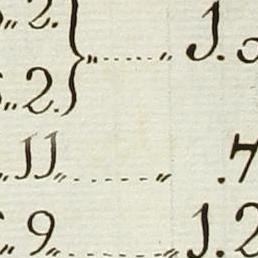 2. } „......„ 1.
„ 2.
„ 11„.......„ .7
„ 9„.......„ 1.2